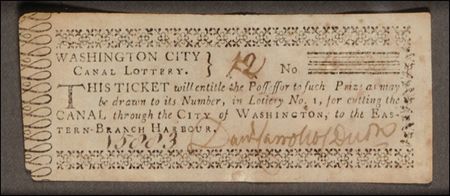 WASHINGTON CITY
CANAL LOTTERY. } 12 No.
THIS TICKET will entitle the Poſſeſſor to ſuch Prize as may
be drawn to its Number, in Lottery No. 1, for cutting the
CANAL through the CITY of WASHINGTON, to the EAS-
TERN-BRANCH HARBOUR.
Carroll of